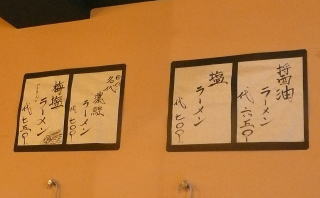 醤油
ラーメン
代 六五〇
塩
ラーメン
代 七〇〇
名代
ラーメン
代 七〇〇
梅塩
ラーメン
代 七五〇